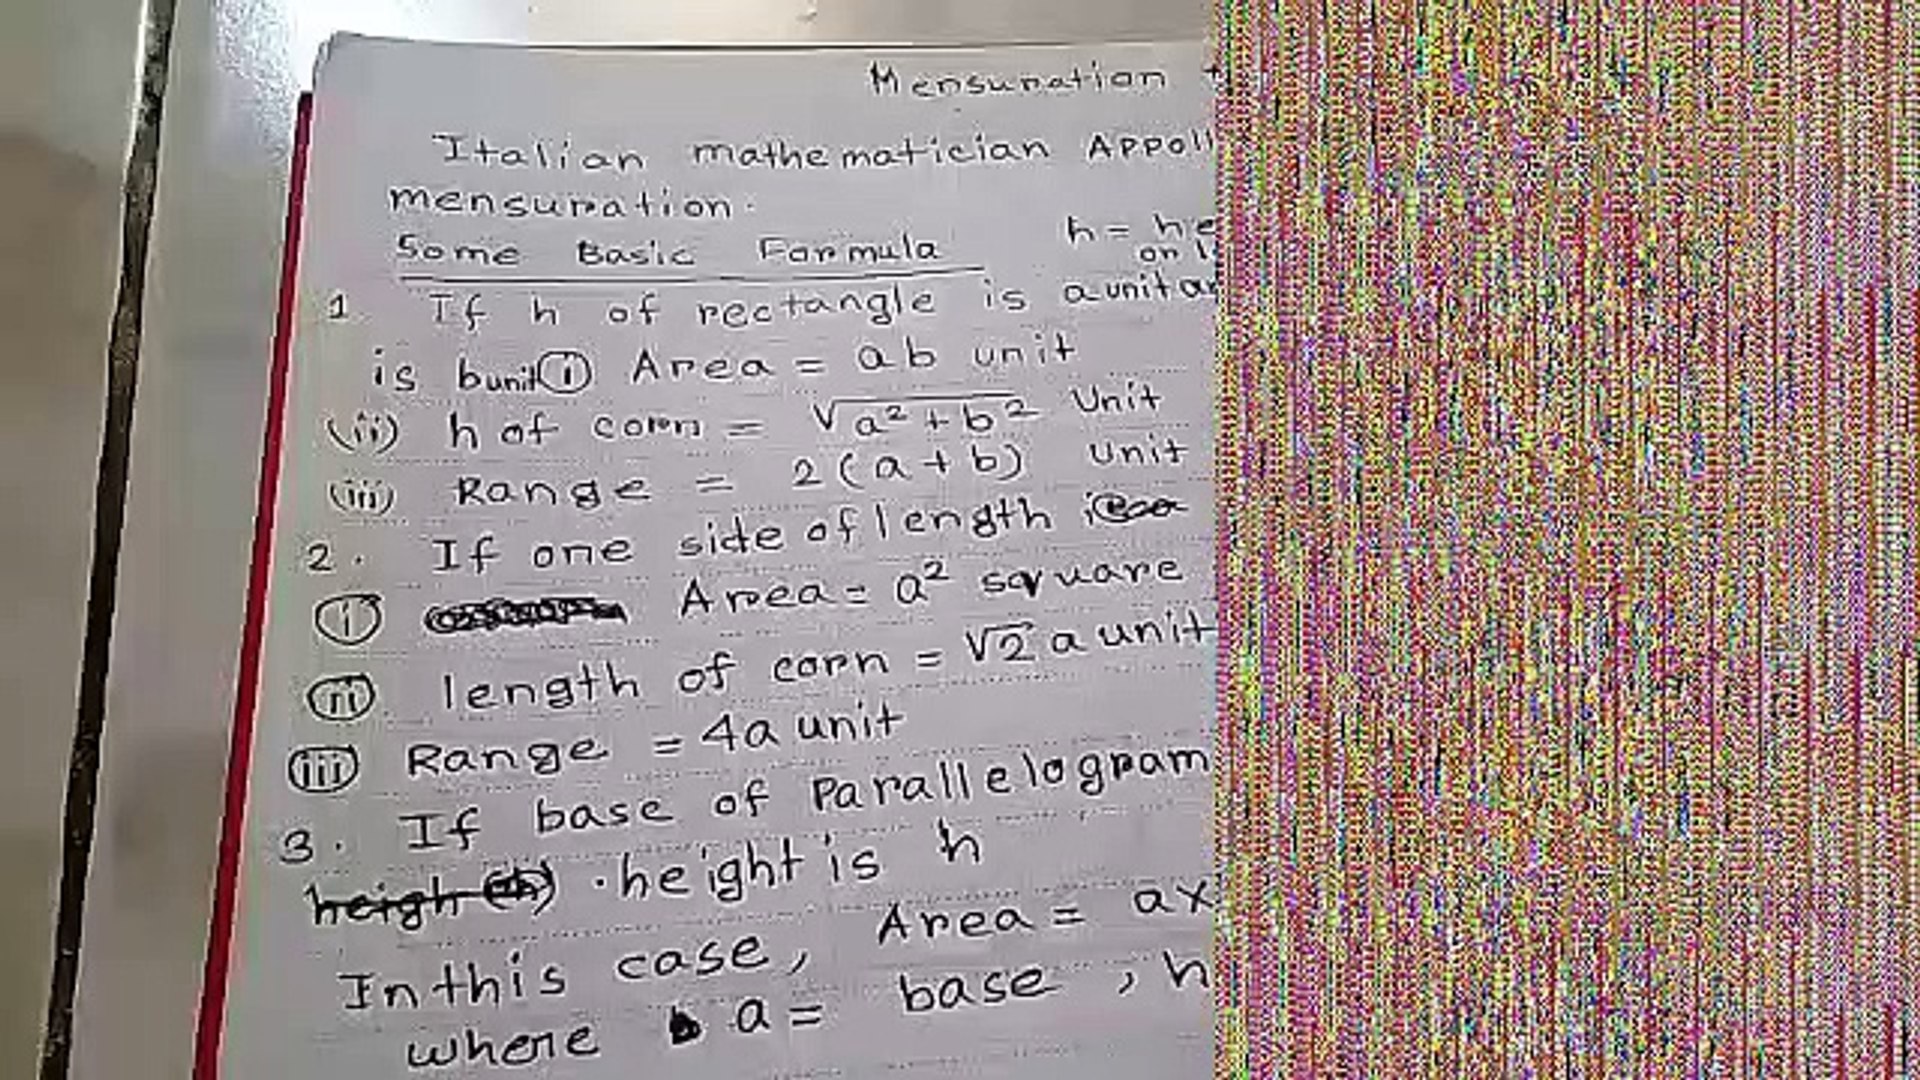 Mensuration
Italian mathematician Appoll
mensuration.
Some Basic Formula
h = he
on l
1 If h of rectangle is a unit
is b unit (i) Area = ab unit
(ii) h of corn = √a² + b² Unit
(iii) Range = 2(a + b) Unit
2. If one side of length
(i) Area = a² square
(ii) length of corn = √2 a unit
(iii) Range = 4a unit
3. If base of Parallelogram
heigh (h) . height is h
In this case, Area = ax
where a = base , h